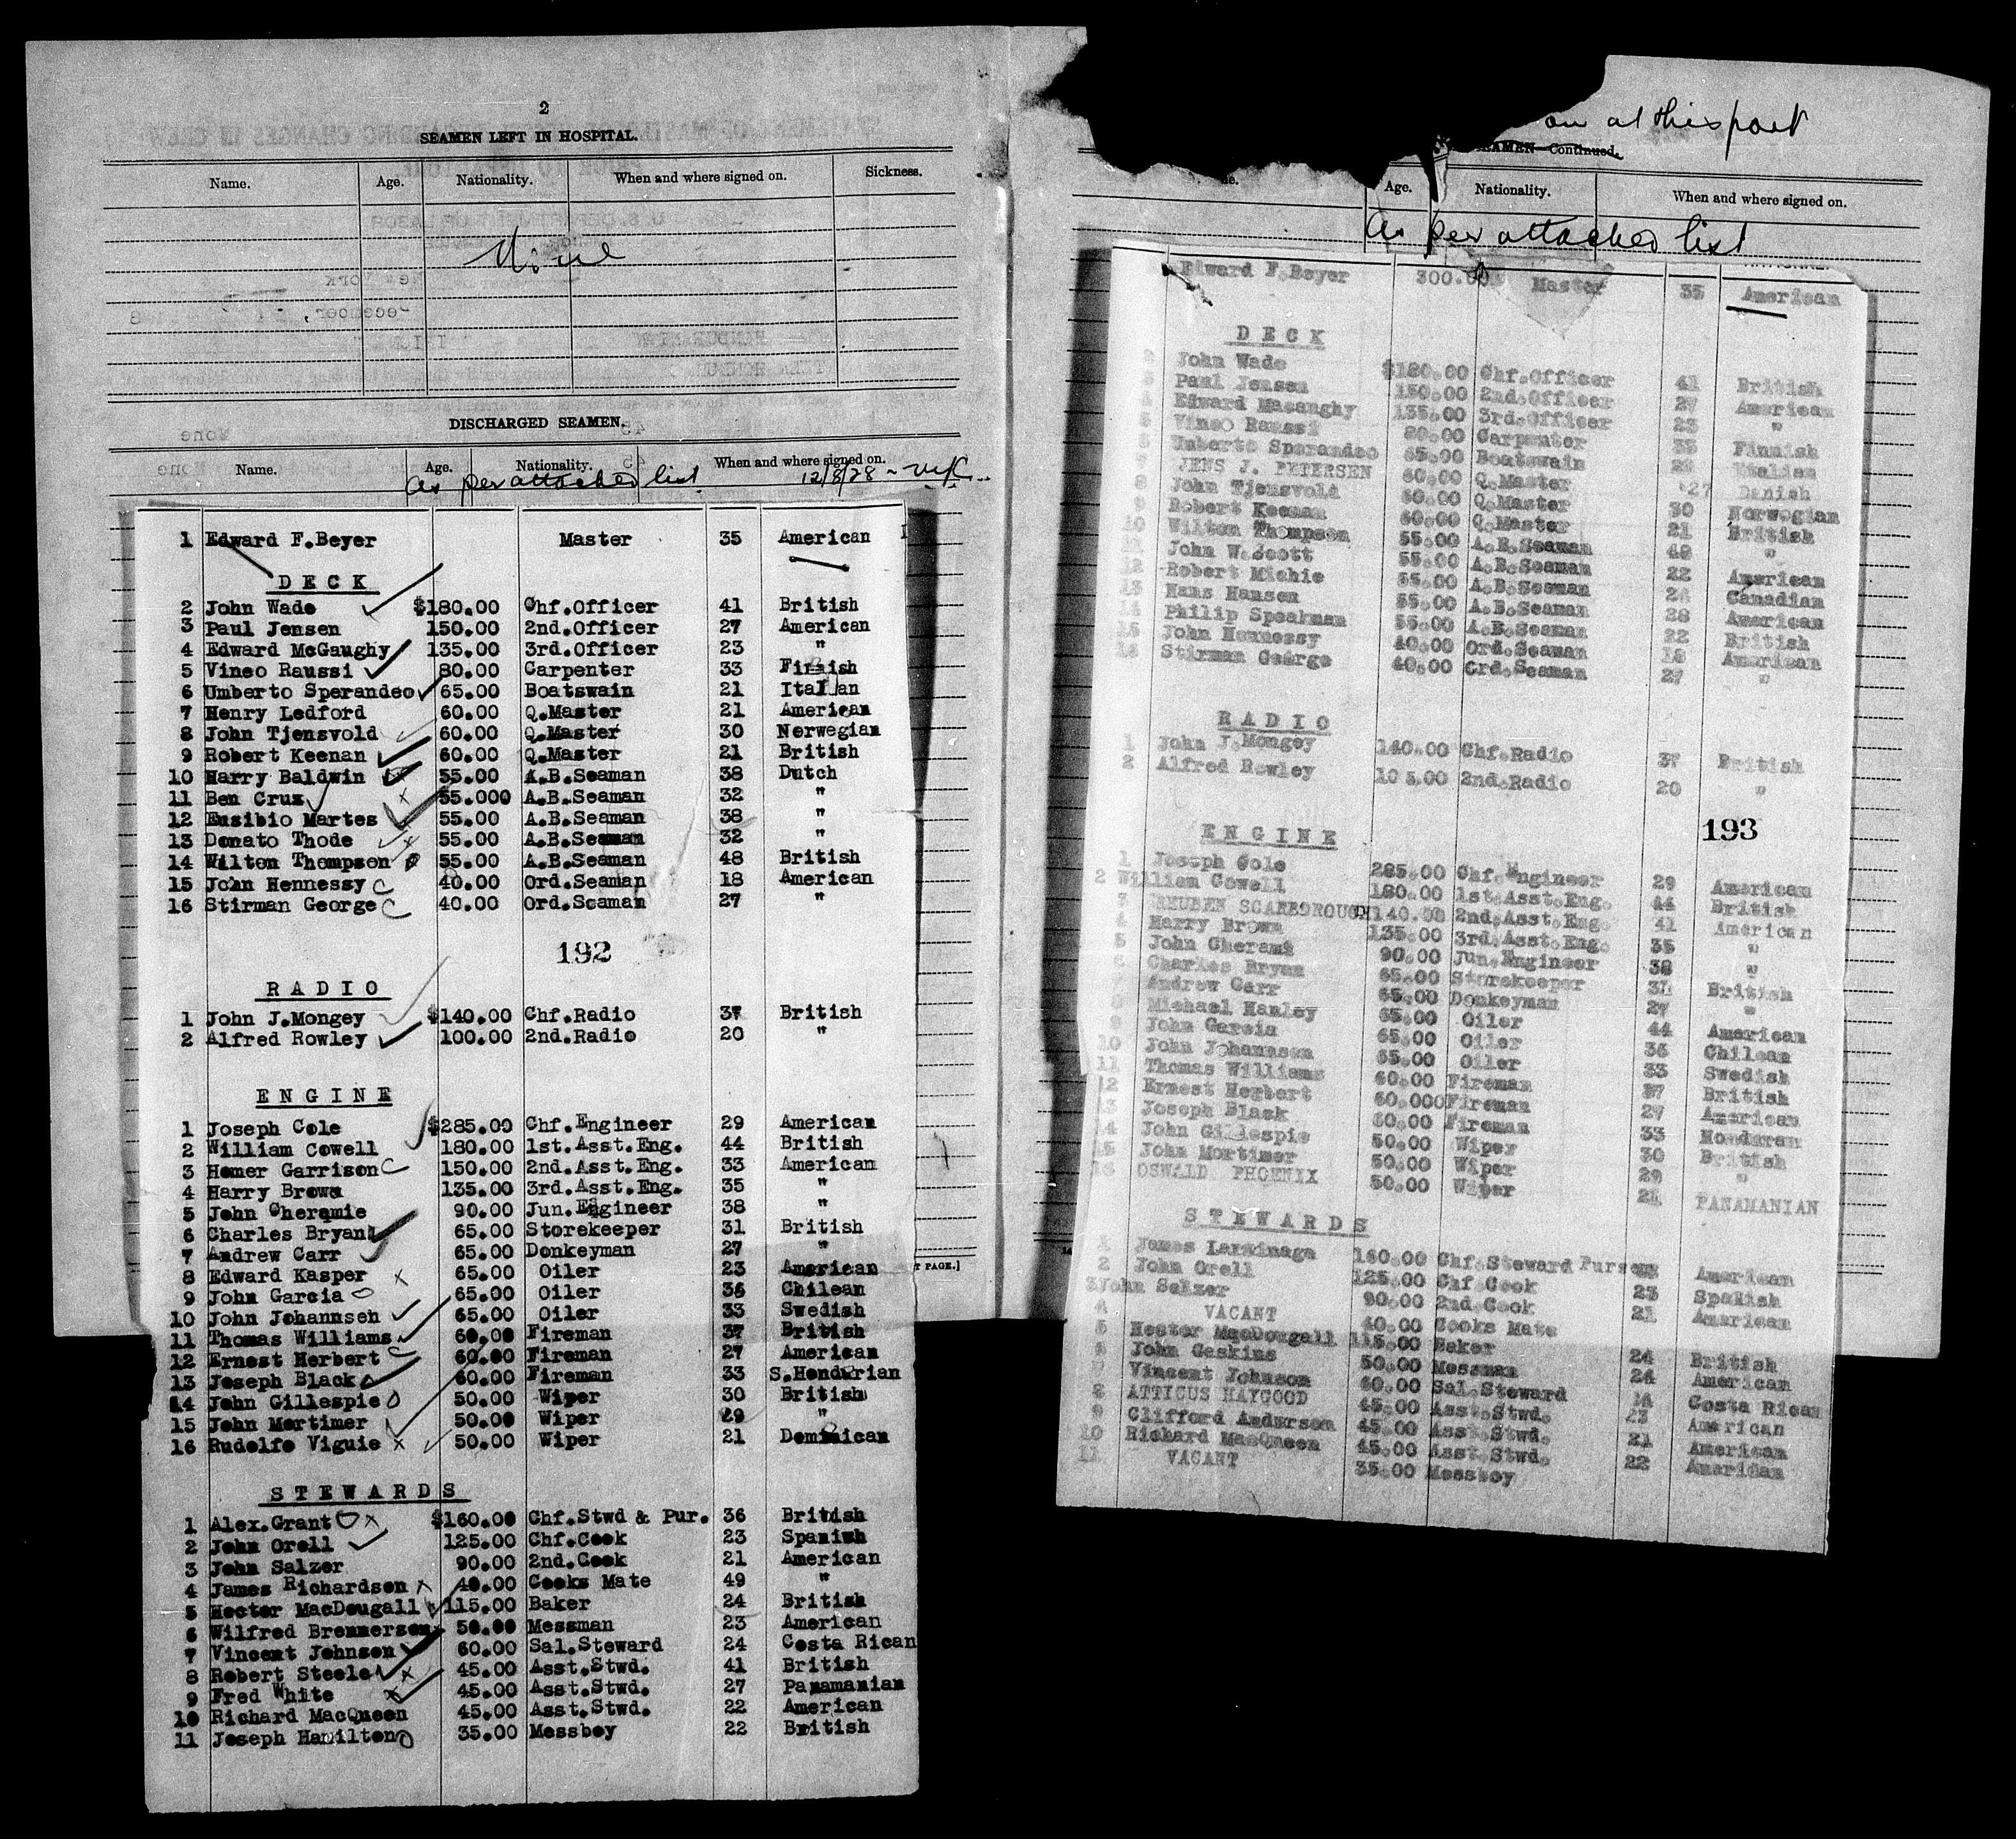 2
SEAMEN LEFT IN HOSPITAL.
Name. Age. Nationality. When and where signed on. Sickness.
None
DISCHARGED SEAMEN.
Name. Age. Nationality. When and where signed on.
As per attached list 12/8/28
1 Edward F.Beyer Master 35 American
DECK
2 John Wade $180.00 Chf.Officer 41 British
3 Paul Jensen 150.00 2nd.Officer 27 American
4 Edward McGaughy 135.00 3rd.Officer 23 "
5 Vineo Raussi 80.00 Carpenter 33 Finnish
6 Umberto Sperandeo 65.00 Boatswain 21 Italian
7 Henry Ledford 60.00 Q.Master 21 American
8 John Tjensvold 60.00 Q.Master 30 Norwegian
9 Robert Keenan 60.00 Q.Master 21 British
10 Harry Baldwin 55.00 A.B.Seaman 38 Dutch
11 Ben Crux 55.000 A.B.Seaman 32 "
12 Eusibio Martes 55.00 A.B.Seaman 38 "
13 Donato Thode 55.00 A.B.Seaman 32 "
14 Wilton Thompson 55.00 A.B.Seaman 48 British
15 John Hennessy 40.00 Ord.Seaman 18 American
16 Stirman George 40.00 Ord.Seaman 27 "
192
RADIO
1 John J.Mongey $140.00 Chf.Radio 37 British
2 Alfred Rowley 100.00 2nd.Radio 20 "
ENGINE
1 Joseph Cole $285.00 Chf.Engineer 29 American
2 William Cowell 180.00 1st.Asst.Eng. 44 British
3 Homer Garrison 150.00 2nd.Asst.Eng. 33 American
4 Harry Brown 135.00 3rd.Asst.Eng. 35 "
5 John Cheramie 90.00 Jun.Engineer 38 "
6 Charles Bryan 65.00 Storekeeper 31 British
7 Andrew Carr 65.00 Donkeyman 27 "
8 Edward Kasper 65.00 Oiler 23 American
9 John Garcia 65.00 Oiler 36 Chilean
10 John Johannsen 65.00 Oiler 33 Swedish
11 Thomas Williams 60.00 Fireman 37 British
12 Ernest Herbert 60.00 Fireman 27 American
13 Joseph Black 60.00 Fireman 33 S.Hondurian
14 John Gillespie 50.00 Wiper 30 British
15 John Mortimer 50.00 Wiper 29 "
16 Rudolfo Viguie 50.00 Wiper 21 Dominican
T PAGE.]
STEWARDS
1 Alex.Grant $160.00 Chf.Stwd & Pur. 36 British
2 John Orell 125.00 Chf.Cook 23 Spanish
3 John Salzer 90.00 2nd.Cook 21 American
4 James Richardson 40.00 Cooks Mate 49 "
5 Hector MacDougall 115.00 Baker 24 British
6 Wilfred Bremmerson 50.00 Messman 23 American
7 Vincent Johnson 60.00 Sal.Steward 24 Costa Rican
8 Robert Steele 45.00 Asst.Stwd. 41 British
9 Fred White 45.00 Asst.Stwd. 27 Panamanian
10 Richard MacQueen 45.00 Asst.Stwd. 22 American
11 Joseph Hamilton 35.00 Messboy 22 British
on at this port
SEAMEN—Continued.
Age. Nationality. When and where signed on.
As per attached list
Edward F.Beyer 300.00 Master 35 American
DECK
2 John Wade $180.00 Chf.Officer 41 British
3 Paul Jensen 150.00 2nd.Officer 27 American
4 Edward Macanghy 135.00 3rd.Officer 23 "
5 Vineo Raussi 80.00 Carpenter 33 Finnish
6 Umberto Sperandeo 65.00 Boatswain 21 Italian
7 JENS J. PETERSEN 60.00 Q.Master 27 Danish
8 John Tjensvold 60.00 Q.Master 30 Norwegian
9 Robert Keenan 60.00 Q.Master 21 British
10 Wilton Thompson 55.00 A.B.Seaman 48 "
11 John W.Scott 55.00 A.B.Seaman 22 American
12 Robert Michie 55.00 A.B.Seaman 24 Canadian
13 Hans Hansen 55.00 A.B.Seaman 28 American
14 Philip Speakman 55.00 A.B.Seaman 22 British
15 John Hennessy 40.00 Ord.Seaman 18 American
16 Stirman George 40.00 Ord.Seaman 27 "
RADIO
1 John J.Mongey 140.00 Chf.Radio 37 British
2 Alfred Rowley 105.00 2nd.Radio 20 "
193
ENGINE
1 Joseph Cole 285.00 Chf.Engineer 29 American
2 William Cowell 180.00 1st.Asst.Eng. 44 British
3 REUBEN SCARBOROUGH 140.00 2nd.Asst.Eng. 41 American
4 Harry Brown 135.00 3rd.Asst.Eng. 35 "
5 John Cherami 90.00 Jun.Engineer 38 "
6 Charles Bryan 65.00 Storekeeper 31 British
7 Andrew Carr 65.00 Donkeyman 27 "
8 Michael Hanley 65.00 Oiler 44 American
9 John Garcia 65.00 Oiler 36 Chilean
10 John Johannsen 65.00 Oiler 33 Swedish
11 Thomas Williams 60.00 Fireman 37 British
12 Ernest Herbert 60.000 Fireman 27 American
13 Joseph Black 60.00 Fireman 33 Honduran
14 John Gillespie 50.00 Wiper 30 British
15 John Mortimer 50.00 Wiper 29 "
16 OSWALD PHOENIX 50.00 Wiper 21 PANAMANIAN
STEWARDS
1 James Larrinaga 160.00 Chf.Steward Purser American
2 John Orell 125.00 Chf.Cook 23 Spanish
3 John Salzer 90.00 2nd.Cook 21 American
4 VACANT 40.00 Cooks Mate
5 Hector MacDougall 115.00 Baker 24 British
6 John Gaskins 50.00 Messman 24 American
7 Vincent Johnson 60.00 Sal.Steward Costa Rican
8 ATTICUS HAYGOOD 45.00 Asst.Stwd. 23 American
9 Clifford Anderson 45.00 Asst.Stwd. 21 American
10 Richard MacQueen 45.00 Asst.Stwd. 22 American
11 VACANT 35.00 Messboy